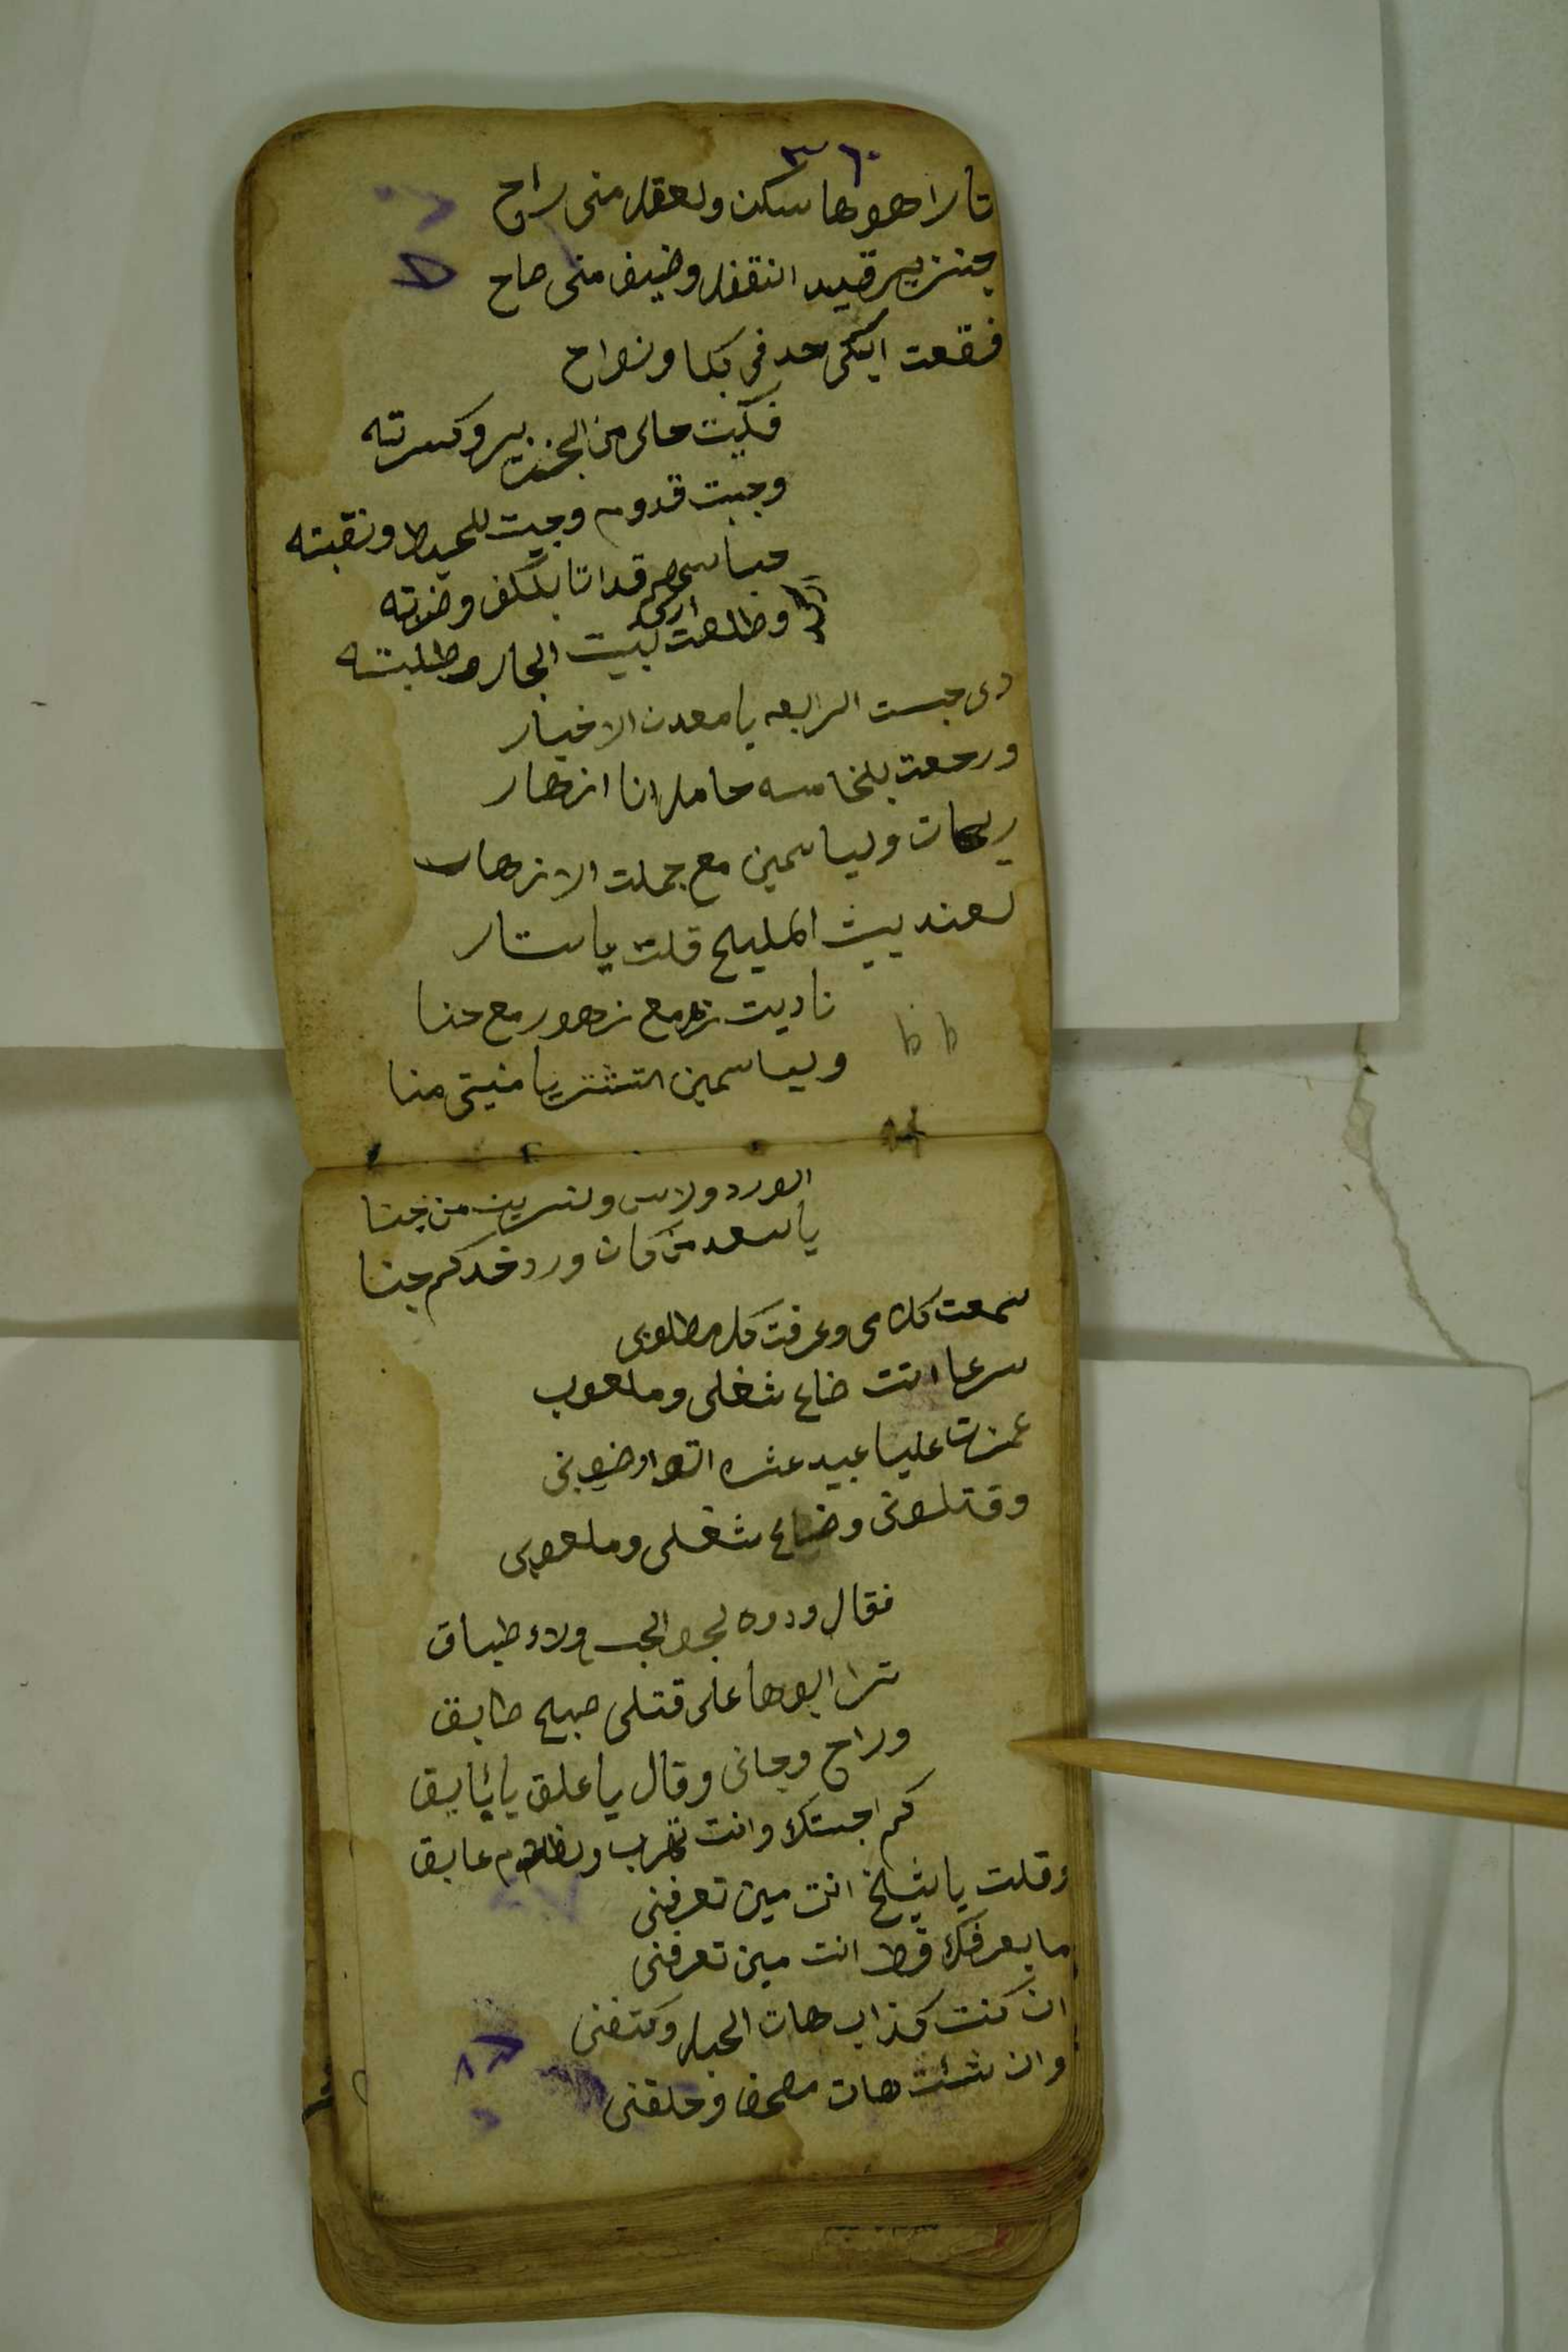 ٣٦٠
تارا هوها سكن ولعقل منى راح
جنزير قيد انقفل وضيف منى صاح
فقعت ابكى حد فى بكا ونواح
فكيت حالى من الجنزير وكسرته
وجبت قدوم وجيت للحيط ونقبته
قداتا بلكف وضربته
وطلعت لبيت الجار وطلبته
دى جيست الرابعه يا معدن الاخيار
ورجعت بلخامسه حامل انا ازهار
ريحان ولياسمين مع جملت الازهار
لعند بيت المليح قلت يا ستار
ناديت زهر مع زهور مع حنا
ولياسمين التشتر يا منيتى منا
الورد ولاس ونسرين من جنا
يا سعد من كان ورد خدكم جنا
سمعت كلامى وعرفت كل مطلوبى
سرعا اتت ضاع شغلى وملعوب
غمزت عليا عبيد عشره اتوا وضربونى
وقتلونى وضاع شغلى وملعوبى
فقال ودوه لجوا الحبس ولاء طباق
ترا ابوها على قتلى صبح طابق
وراح وجانى وقال يا علق يا بايق
كم احبستك وانت تهرب عايق
وقلت يا شيخ انت مين تعرفنى
ما بعرفك قط انت مين تعرفنى
ان كنت كذاب هات الحبل وكتفنى
وان شئت هات مصحف وحلفنى